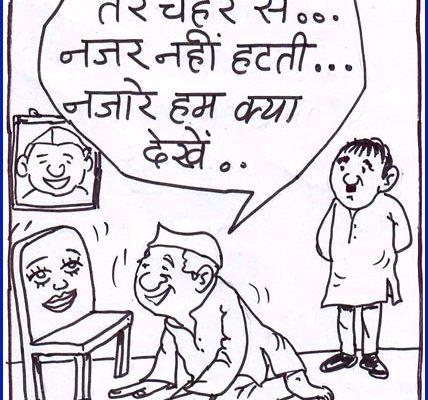 तेरे चेहरे से...
नजर नहीं हटती...
नजारे हम क्या
देखें..